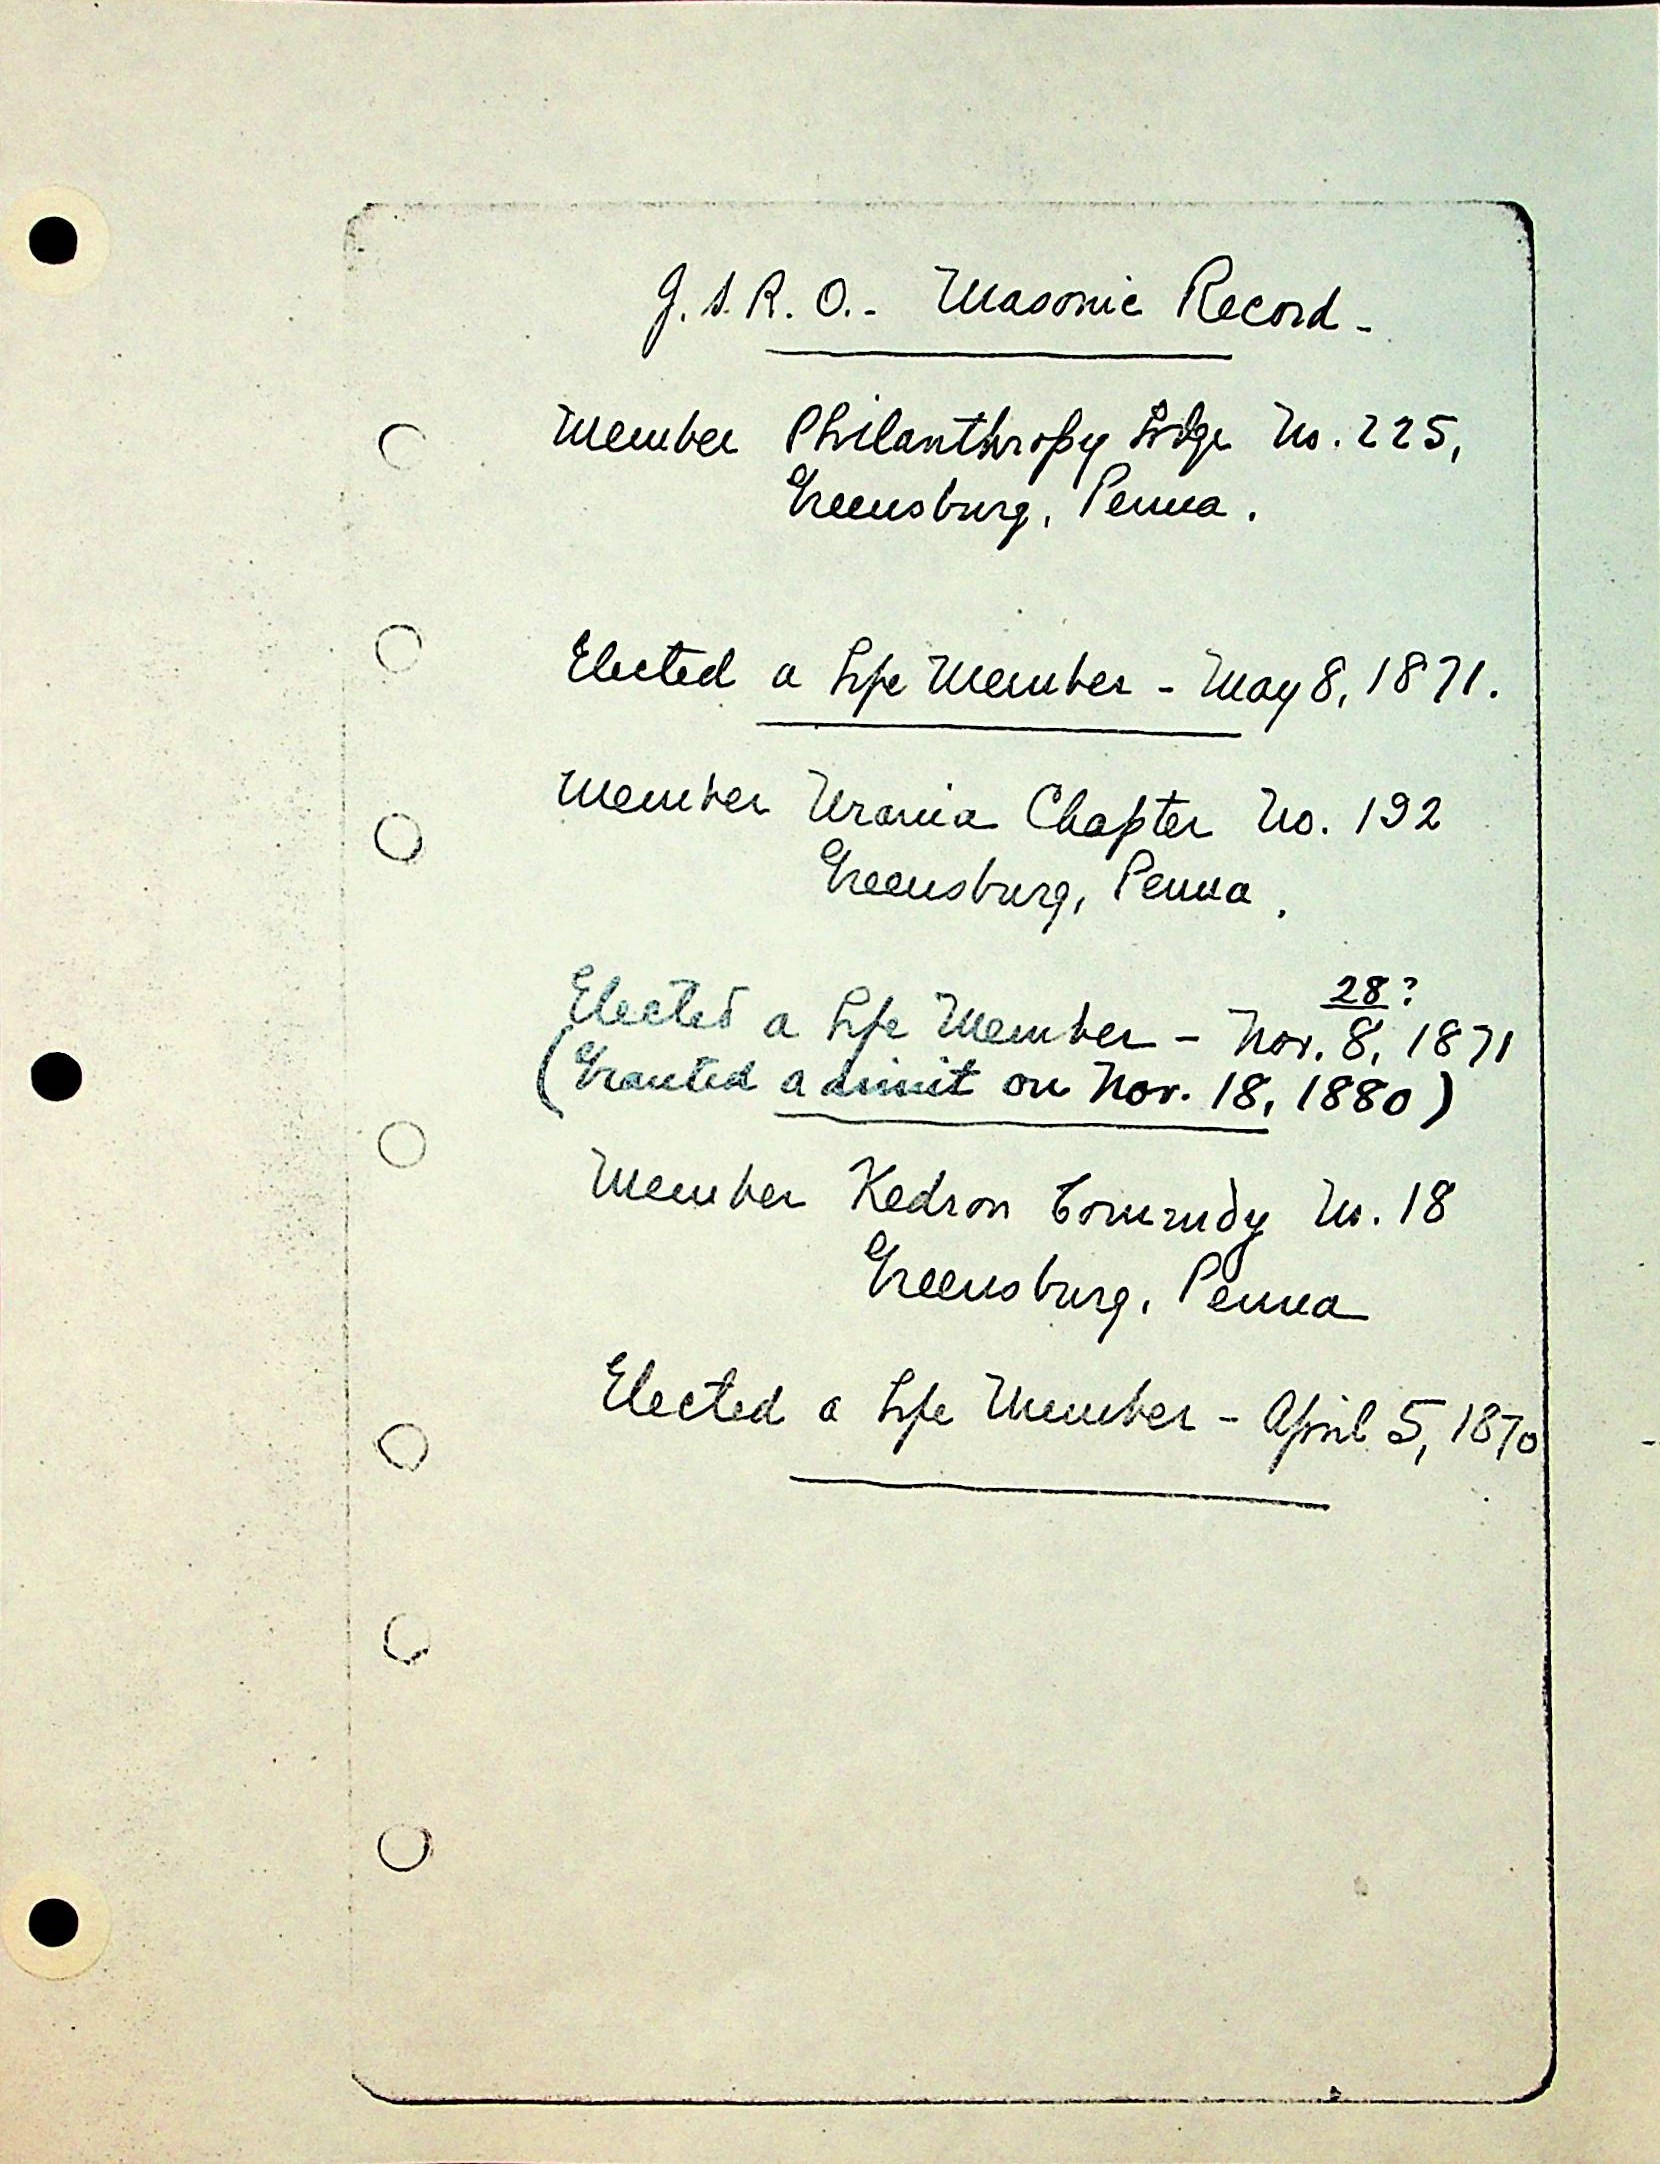 J. S. R. O. - Masonic Record -
Member Philanthropy Lodge No. 225,
Greensburg, Penna.
Elected a Life Member - May 8, 1871.
Member Urania Chapter No. 192
Greensburg, Penna.
28?
Elected a Life Member - Nov. 8, 1871
(Granted a dimit on Nov. 18, 1880)
Member Kedron Commdy No. 18
Greensburg, Penna
Elected a Life Member - April 5, 1870